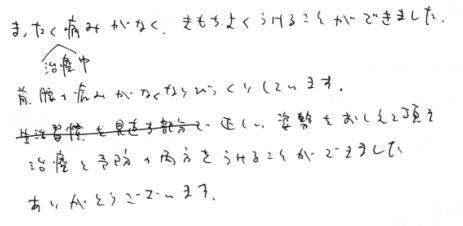 まったく痛みがなく、きもちよくうけることができました。
治療中
首、腰の痛みがなくなりびっくりしています。
生活習慣を見直す部分で 正しい姿勢をおしえて頂き
治療と予防の両方をうけることができました
ありがとうございます。